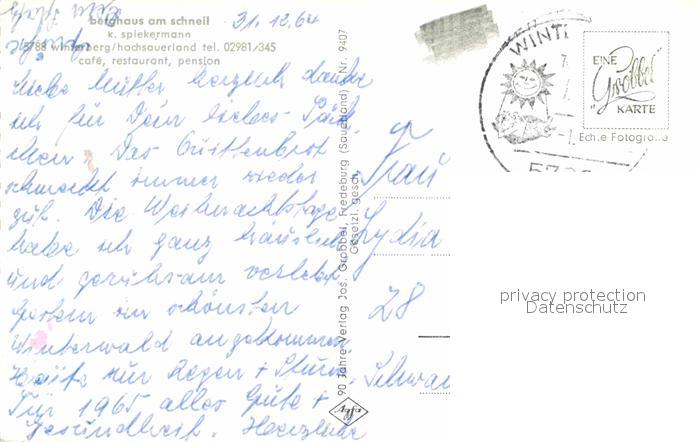 berghaus am schneil
k. spiekermann
5788 winterberg/hochsauerland tel. 02981/345
café, restaurant, pension
31.12.64
Liebe Mutter herzlich danke
ich für Dein liebes Päck
chen. Das Quittenbrot
schmeckt immer wieder
gut. Die Weihnachtstage
habe ich ganz häuslich
und geruhsam verlebt
Gestern im schönsten
Winterwald angekommen
Heute nur Regen + Sturm.
Für 1965 alles Gute +
Gesundheit. Herzlichst
90 Jahre Verlag Jos. Grobbel, Fredeburg (Sauerland) Nr. 9407
Gesetzl. gesch.
Agfa
Frau
Lydia
28
Schwa
WINT
EINE
"Grobbel"
KARTE
Echte Fotografie
privacy protection
Datenschutz